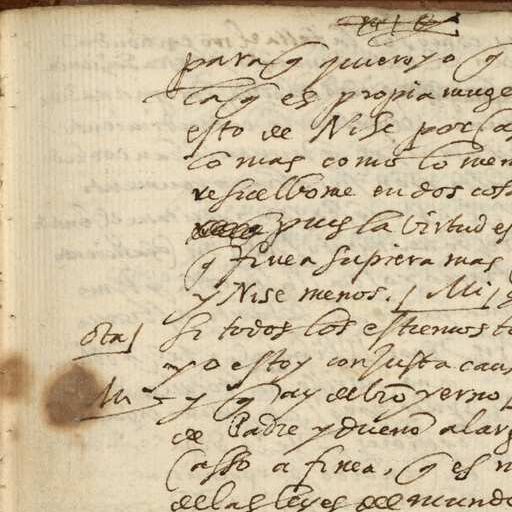 para q̃ quiero yo q̃
la q̃ es propia muge
esto de Nise por cas
lo mas como lo men
resuelbome en dos cos
pues la birtud es
q̃ finea supiera mas
y Nise menos. / Mi /
ota / si todos los estremos t
yo estoy con justa caus
Mi - y q̃ ay de bro yerno
de Padre y dueño alarg
casso a finea, q̃ es n
de las leyes del mundo